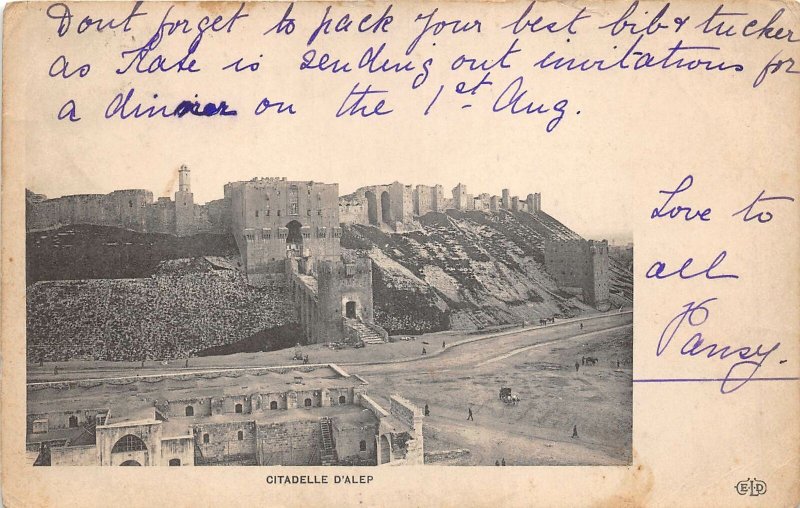 Dont forget to pack your best bib & tucker
as Kate is sending out invitations for
a dinner on the 1st Aug.
Love to
all
Pansy.
CITADELLE D'ALEP
ELD